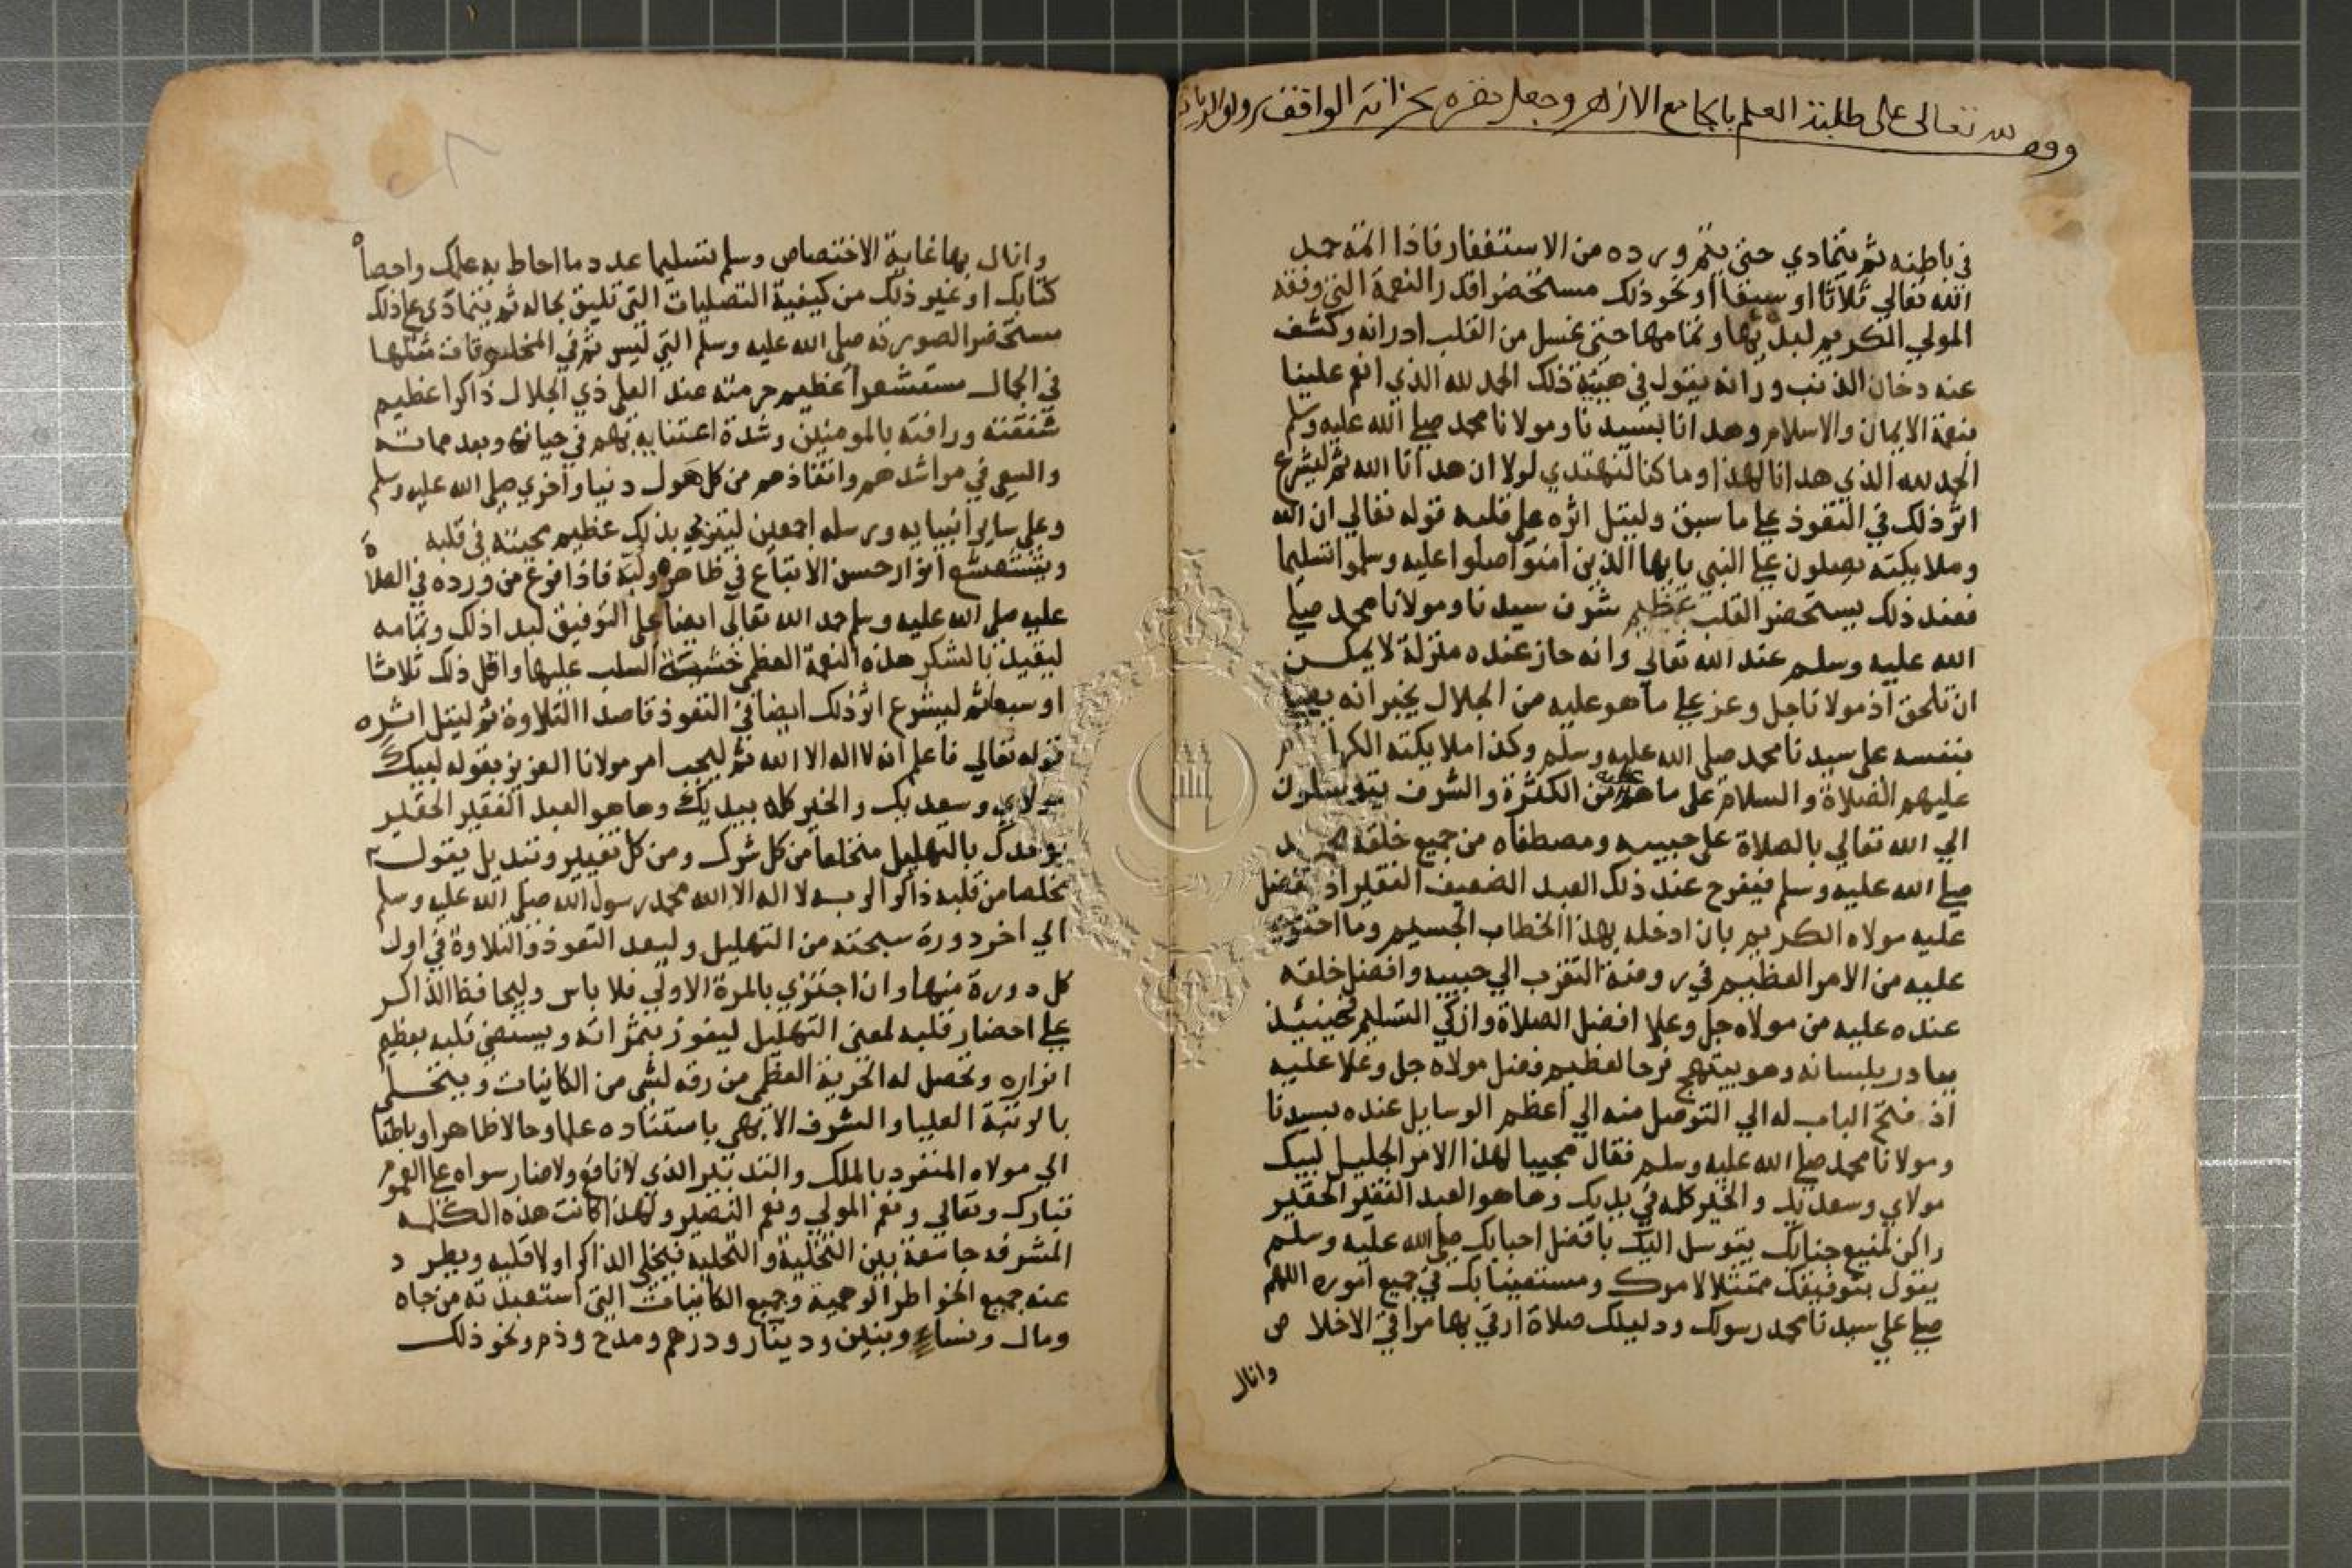 ووقف لله تعالى على طلبة العلم بالجامع الازهر وجعل مقره بخزانة الواقف برواق
في باطنه ثم يتمادي حتى يتم ورده من الاستغفار فاذا اتمه حمد
الله تعالي ثلاثا او سبعا او نحو ذلك مستحضرا قدر النعمة التي وفقه
المولي الكريم لبدئها وتمامها حتى غسل من القلب ادرانه وكشف
عنه دخان الذنب ورانه يقول في هيئة ذلك الحمد لله الذي انعم علينا
بنعمة الايمان والاسلام وهدانا بسيدنا ومولانا محمد صلي الله عليه وسلم
الحمد لله الذي هدانا لهذا وما كنا لنهتدي لولا ان هدانا الله ثم ليشرع
اثر ذلك في التعوذ علي ما سبق وليتل اثره علي قلبه قوله تعالي ان الله
وملايكته يصلون علي النبي يايها الذين امنوا صلوا عليه وسلموا تسليما
فعند ذلك يستحضر القلب عظيم شرف سيدنا ومولانا محمد صلي
الله عليه وسلم عند الله تعالي وانه حاز عنده منزلة لا يمكن
ان تلحق اذ مولانا جل وعز علي ما هو عليه من الجلال يخبر انه يصلي
بنفسه على سيدنا محمد صلى الله عليه وسلم وكذا ملايكته الكرام
عليهم الصلاة والسلام على ما هم عليه من الكثرة والشرف يتوسلون
الي الله تعالي بالصلاة على حبيبه ومصطفاه من جميع خلقه محمد
صلي الله عليه وسلم فيفرح عند ذلك العبد الضعيف الفقير اذ تفضل
عليه مولاه الكريم بان ادخله بهذا الخطاب الجسيم وما احتوي
عليه من الامر العظيم في روضة التقرب الي حبيبه وافضل خلقه
عنده عليه من مولاه جل وعلا افضل الصلاة وازكي التسليم فحينئذ
يبادر بلسانه وهو يبتهج فرحا لعظيم فضل مولاه جل وعلا عليه
اذ فتح الباب له الي التوصل منه الي اعظم الوسايل عنده بسيدنا
ومولانا محمد صلي الله عليه وسلم فقال مجيبا لهذا الامر الجليل لبيك
مولاي وسعديك والخير كله في يديك وها هو العبد الفقير الحقير
راكن لمنيع جنابك يتوسل اليك بافضل احبابك صلي الله عليه وسلم
يقول بتوفيقك ممتثلا لامرك ومستعينا بك في جميع اموره اللهم
صلي علي سيدنا محمد رسولك ودليلك صلاة ارقي بها مراقي الاخلاص
وانال
وانال بها غاية الاختصاص وسلم تسليما عدد ما احاط به علمك واحصاه
كتابك او غير ذلك من كيفية التصليات التي تليق بحاله ثم يتمادي على ذلك
مستحضرا لصورته صلى الله عليه وسلم التي ليس ثم في المخلوقات مثلها
في الجمال مستشعرا عظيم حرمته عند العلي ذي الجلال ذاكرا عظيم
شفقته ورافته بالمومنين وشدة اعتنايه بهم في حياته وبعد مماته
والسعي في مراشدهم وانقاذهم من كل هول دنيا واخري صلي الله عليه وسلم
وعلي ساير انبيايه ورسله اجمعين ليتربي بذلك عظيم محبته في قلبه
ويتشعشع انوار حسن الاتباع في ظاهره ولبه فاذا فرغ من ورده في الصلاة
عليه صلى الله عليه وسلم حمد الله تعالى ايضا على التوفيق لبدا ذلك وتمامه
ليقيد بالشكر هذه النعمة العظمى خشية السلب عليها واقل ذلك ثلاثا
او سبعا ثم ليشرع اثر ذلك ايضا في التعوذ قاصدا التلاوة ثم ليتل اثره
قوله تعالي فاعلم انه لا اله الا الله ثم ليجب امر مولانا العزيز بقوله لبيك
مولاي وسعديك والخير كله بيديك وها هو العبد الفقير الحقير
يوحدك بالتهليل منخلعا من كل شرك ومن كل تغيير وتبديل يقول
مخلصا من قلبه ذاكرا لربه لا اله الا الله محمد رسول الله صلي الله عليه وسلم
الي اخر دورة سبحته من التهليل وليعد التعوذ والتلاوة في اول
كل دورة منها وان اجتزي بالمرة الاولي فلا باس وليحافظ الذاكر
علي احضار قلبه لمعنى التهليل ليفوز بثمراته ويستضي قلبه بعظيم
انواره وتحصل له الحرية العظمى من رقه لشي من الكاينات ويتحلى
بالرتبة العليا والشرف الابهي باستناده علما وحالا ظاهرا وباطنا
الي مولاه المنفرد بالملك والتدبير الذي لا نافع ولا ضار سواه على العموم
تبارك وتعالي ونعم المولي ونعم النصير ولهذا كانت هذه الكلمة
المشرفة جامعة بين التخلية والتحلية فيخلي الذاكر اولا قلبه ويطرد
عنه جميع الخواطر الوهمية وجميع الكاينات التي استعبدته من جاه
ومال ونساء وبنين ودينار ودرهم ومدح وذم ونحو ذلك